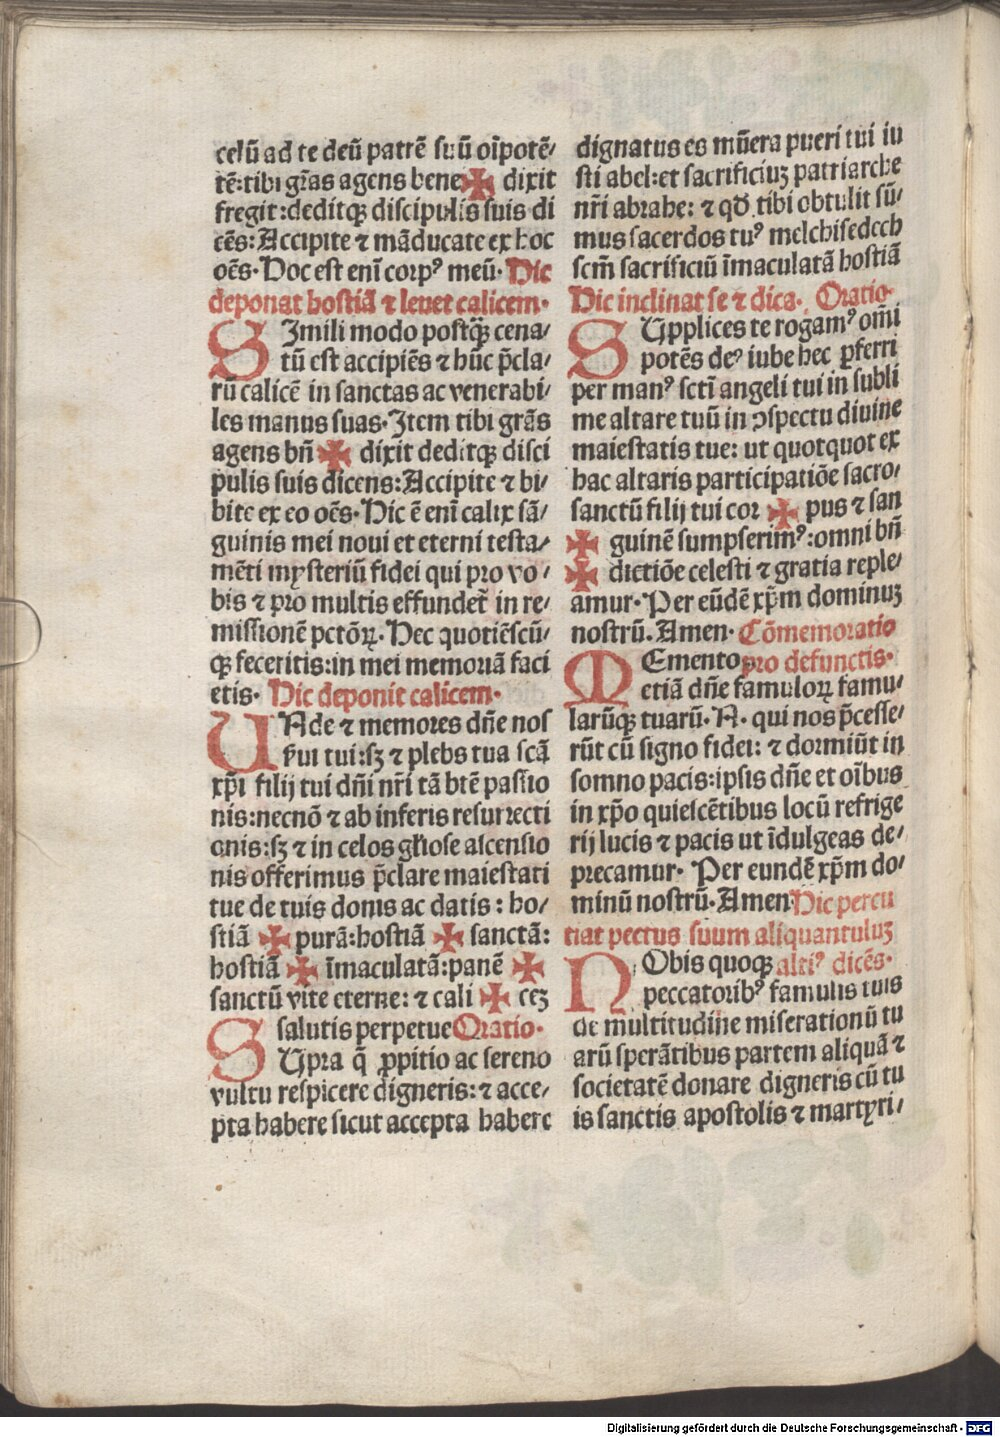 celū ad te deū patrē suū oīpotē/
tē: tibi grās agens bene ✠ dixit
fregit: deditqȝ discipulis suis di
cēs: Accipite ⁊ māducate ex hoc
oēs. Hoc est enī corpꝰ meū. Hic
deponat hostiā ⁊ levet calicem.
SImili modo postq̄ȝ cena/
tū est accipiēs ⁊ hūc p̄cla/
rū calicē in sanctas ac venerabi/
les manus suas. Item tibi grās
agens bn̄ ✠ dixit deditqȝ disci
pulis suis dicens: Accipite ⁊ bi/
bite ex eo oēs. Hic ē enī calix sā/
guinis mei noui et eterni testa/
mēti mysteriū fidei qui pro vo/
bis ⁊ pro multis effundet̄ in re/
missionē pctōꝝ. Hec quotiēscū/
qȝ feceritis: in mei memoriā faci
etis. Hic deponit calicem.
UNde ⁊ memores dn̄e nos
s̄ui tui: sȝ ⁊ plebs tua scā
xp̄i filij tui dn̄i nr̄i tā btē passio
nis: necnō ⁊ ab inferis resurrecti
onis: sȝ ⁊ in celos gl̄iose ascensio
nis offerimus p̄clare maiestati
tue de tuis donis ac datis: ho/
stiā ✠ purā: hostiā ✠ sanctā:
hostiā ✠ īmaculatā: panē ✠
sanctū vite eterne: ⁊ cali ✠ ceȝ
salutis perpetue Oratio.
SUpra q̄ ꝓpitio ac sereno
vultu respicere digneris: ⁊ acce/
pta habere sicut accepta habere
dignatus es mūera pueri tui iu
sti abel: et sacrificiuȝ patriarche
nr̄i abrahe: ⁊ qd̄ tibi obtulit sū/
mus sacerdos tuꝰ melchisedech
scm̄ sacrificiū īmaculatā hostiā
Hic inclinat se ⁊ dica. Oratio
SUpplices te rogamꝰ om̄i
potēs deꝰ iube hec ꝑferri
per manꝰ sctī angeli tui in subli
me altare tuū in ꝯspectu diuine
maiestatis tue: ut quotquot ex
hac altaris participatiōe sacro/
sanctū filij tui cor ✠ pus ⁊ san
✠ guinē sumpserimꝰ: omni bn̄
✠ dictiōe celesti ⁊ gratia reple/
amur. Per eūdē xp̄m dominuȝ
nostrū. Amen. Cōmemoratio
MEmento pro defunctis.
etiā dn̄e famuloꝝ famu/
larūqȝ tuarū. N. qui nos p̄cesse/
rūt cū signo fidei: ⁊ dormiūt in
somno pacis: ipsis dn̄e et oībus
in xp̄o quiescētibus locū refrige
rij lucis ⁊ pacis ut īdulgeas de/
precamur. Per eundē xp̄m do/
minū nostrū. Amen. Hic percu
tiat pectus suum aliquantuluȝ
NObis quoqȝ altiꝰ dicēs.
peccatoribꝰ famulis tuis
de multitudine miserationū tu
arū sperātibus partem aliquā ⁊
societatē donare digneris cū tu
is sanctis apostolis ⁊ martyri/
Digitalisierung gefördert durch die Deutsche Forschungsgemeinschaft - DFG